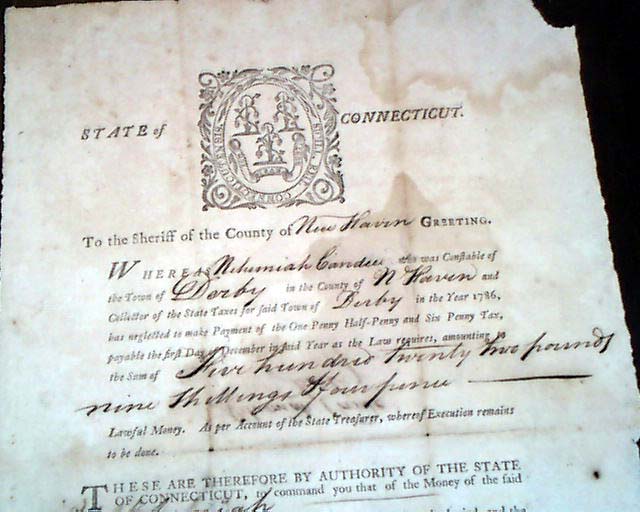 STATE of CONNECTICUT.
To the Sheriff of the County of New Haven GREETING.
WHEREAS Nehemiah Candee who was Constable of
the Town of Derby in the County of N Haven and
Collector of the State Taxes for said Town of Derby in the Year 1786,
has neglected to make Payment of the One Penny Half-Penny and Six Penny Tax,
payable the first Day of December in said Year as the Law requires, amounting to
the Sum of Five hundred twenty two pounds
nine Shillings & four pence
Lawful Money. As per Account of the State Treasurer, whereof Execution remains
to be done.
THESE ARE THEREFORE BY AUTHORITY OF THE STATE
OF CONNECTICUT, to command you that of the Money of the said